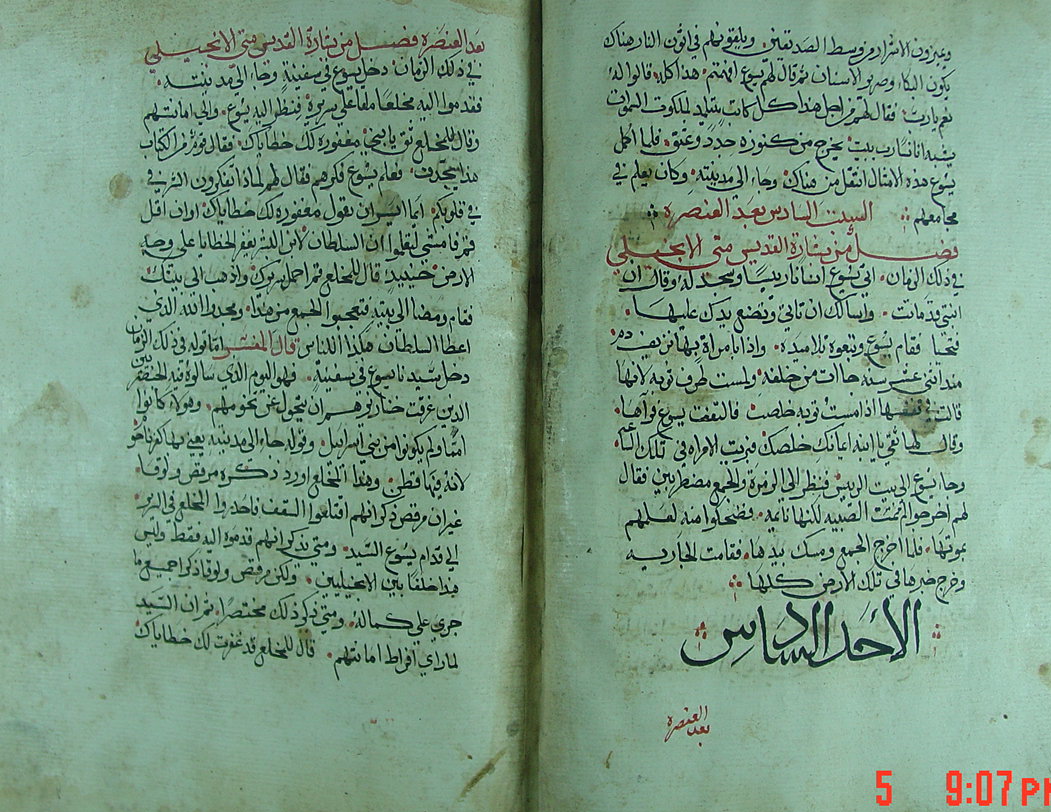 ويميزون الاشرار من وسط الصديقين. ويلقونهم في اتون النار هناك
يكون البكاء وصرير الاسنان ثم قال لهم يسوع افهمتم هذا كله. قالوا له
نعم يارب. فقال لهم من اجل هذا كل كاتب يتلمد لملكوت السموات
يشبه انسانا رب بيت يخرج من كنوزه جدد وعتق. فلما اكمل
يسوع هذه الامثال انتقل من هناك وجاء الى مدينته. وكان يعلم في
مجامعهم السبت السادس بعد العنصره
فصل من بشارة القديس متى الانجيلي
في ذلك الزمان. اتى يسوع انسانا رييسا وسجد له وقال ان
ابنتي قد ماتت. واسالك ان تاتي وتضع يدك عليها
فتحيا فقام يسوع وتبعوه تلاميده. واذا بامراة بها نزيف دم
مند اثني عشر سنه جاات من خلفه ولمست طرف توبه لانها
قالت في نفسها اذا مست توبه خلصت فالتفت يسوع فراها.
وقال لها ثقي يا ابنة ايمانك خلصك فبريت الامراه في تلك الساعه
وجا يسوع الى بيت الرييس فنظر الى الزمرة والجمع مضطربين فقال
لهم اخرجوا لم تمت الصبيه لكنها نايمة. فضحكوا منه لعلمهم
بموتها. فلما اخرج الجمع ومسك بيدها. فقامت الجاريه
وخرج خبرها في تلك الارض كلها
الاحد السادس
بعد العنصره
بعد العنصره فصل من بشارة القديس متى الانجيلي
في ذلك الزمان. دخل يسوع في سفينة وجا الى مدينته.
فقدموا اليه مخلعا ملقا على سريره فنظر اليه يسوع. والى امانتهم
وقال للمخلع ثق يا بني مغفورة لك خطاياك. فقال قوم من الكتاب
هذا يجدف. فعلم يسوع فكرهم فقال لهم لماذا تفكرون الشر في
في قلوبكم. ايما ايسر ان يقول مغفورة لك خطاياك او ان اقل
قم فامشي ليعلموا ان السلطان لابن البشر يغفر الخطايا على وجه
الارض حينيد قال للمخلع قم احمل سريرك واذهب الى بيتك
فقام ومضا الى بيته فتعجبوا الجمع من هذا. ومجدوا الله الذي
اعطا السلطان هكذا للناس قال المفسر اما قوله في ذلك الزمان
دخل سيدنا يسوع في سفينة. فهو اليوم الذي سالوه فيه الجنسريين
الدين غرقت خنازيرهم ان يتحول عن تخومهم وهولا كانوا
امتا ولم يكونوا من بني اسراييل وقوله جاء الى مدينته يعني بها كفرناحوم
لانه فيها قطن وهذا المخلع اورد ذكره مرقص ولوقا.
غير ان مرقص ذكر انهم اقتلعوا السقف فاحدروا المخلع في السرير
الى قدام يسوع السيد ومتى يذكر انهم قدموه اليه فقط وليس
هذا خلفا بين الانجيليين. ولكن مرقص ولوقا ذكرا جميع ما
جرى على كماله. ومتى ذكر ذلك مختصرا. ثم ان السيد
لما راى افراط امانتهم قال للمخلع قد غفرت لك خطاياك
5 9:07 PM